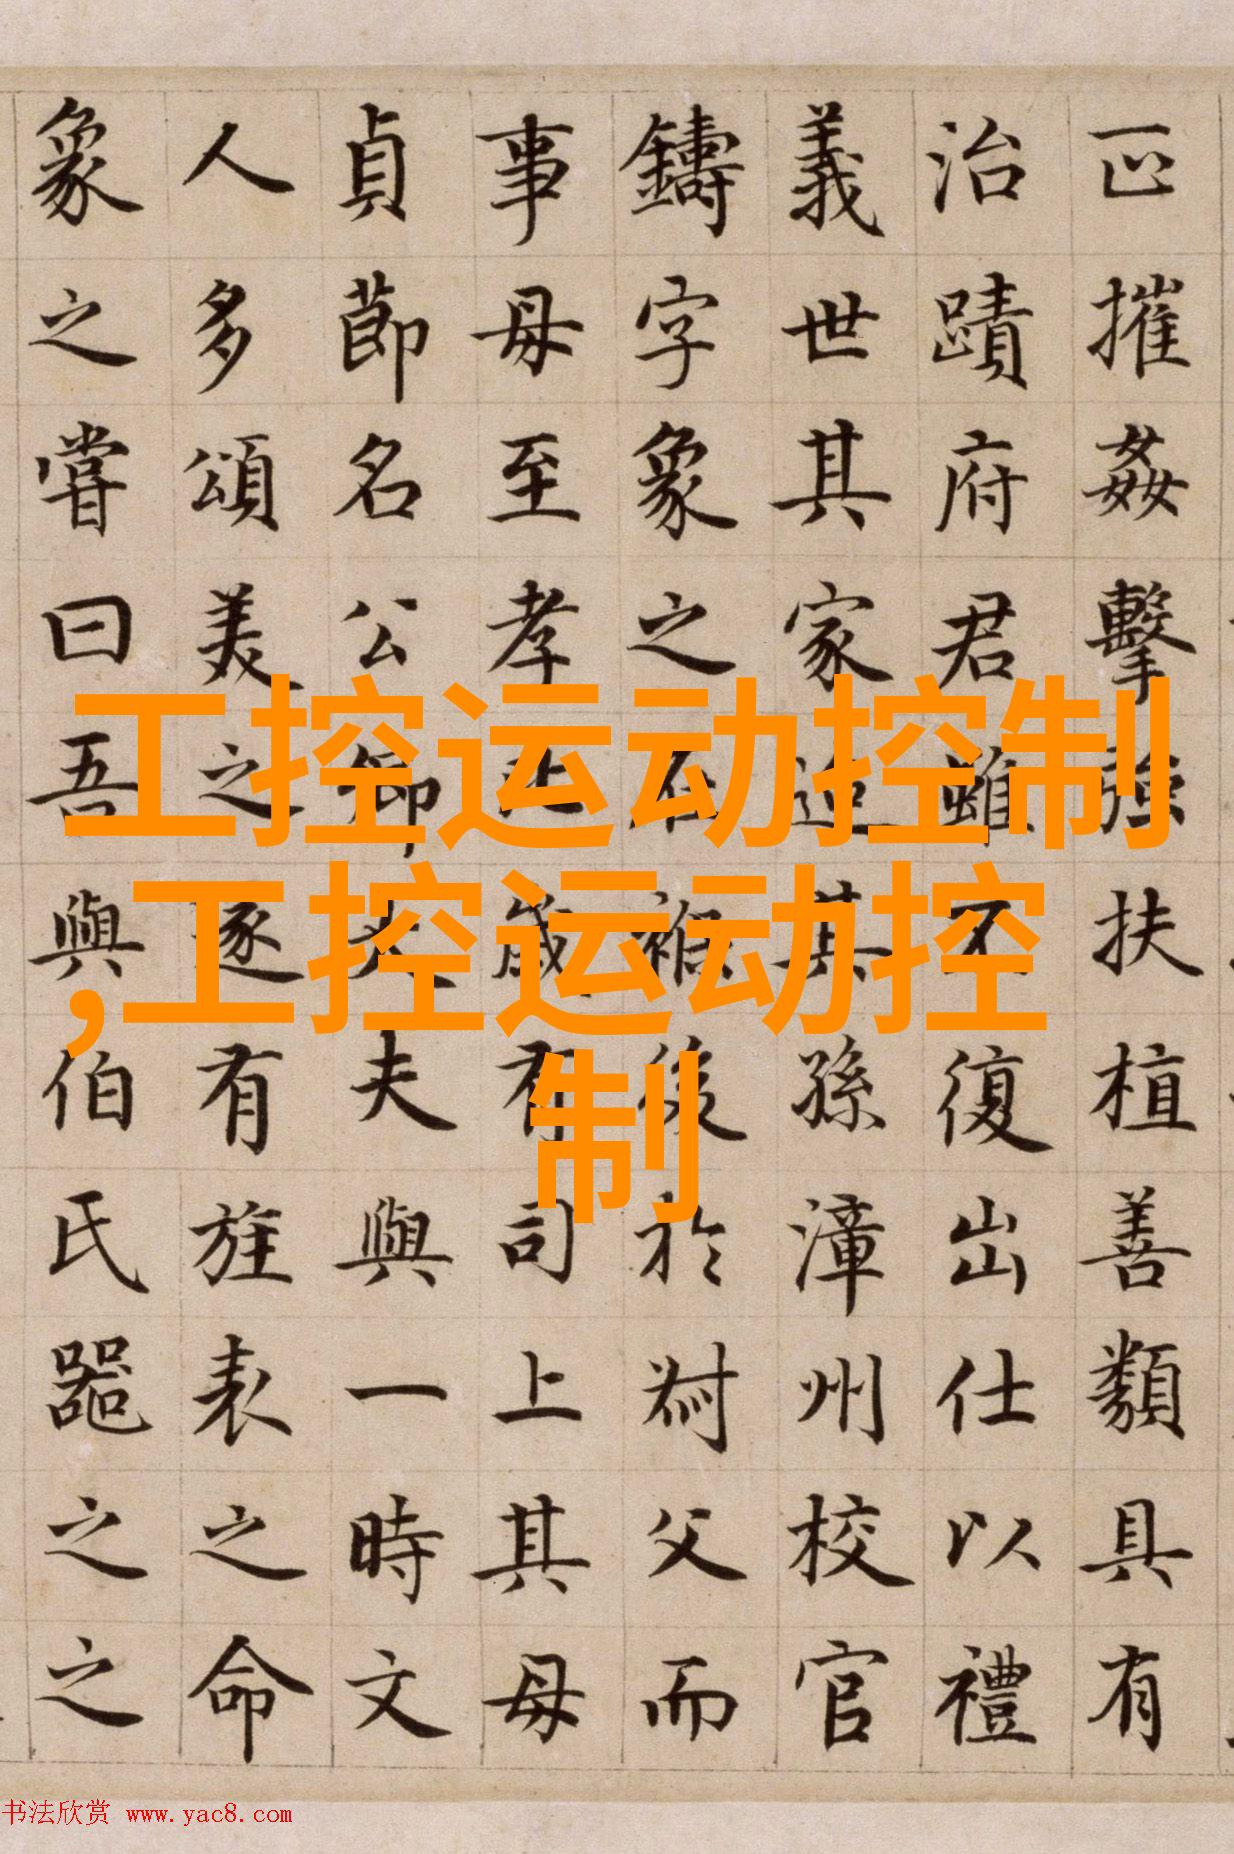 摧姦擊強扶植善類具有
治蹟府君雖不復出仕以禮
義世其家迨其孫漳州校官
鑄字象之在褓後於父而
事母至孝比歲有司上其母
貞節名公卿大夫與一時文
人多頌美之遂有旌表之命
象之嘗曰吾與伯氏器之之
工控运动控制
,工控运动控
制
书法欣赏 www.yac8.com